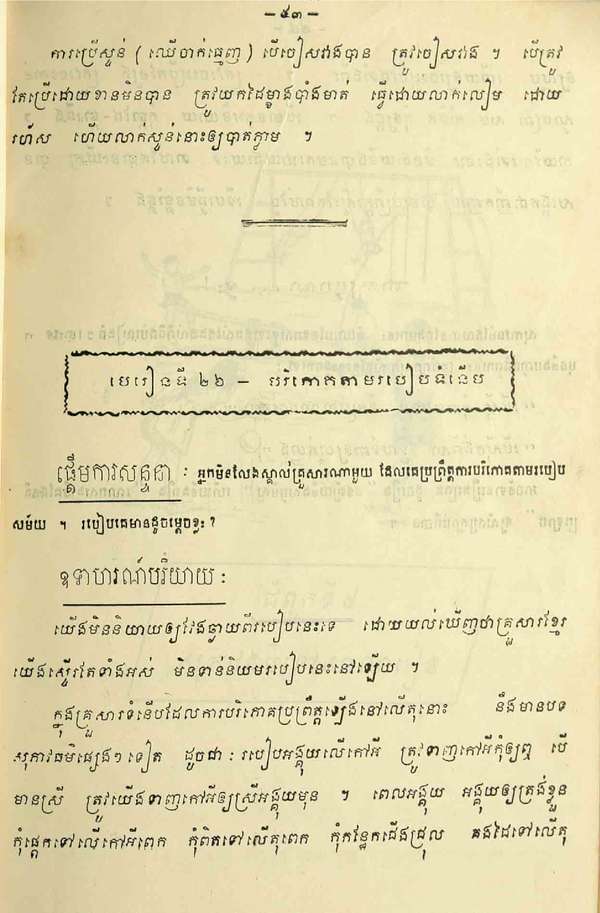 — ៥៣ —
ការប្រើស្ទន់ ( ឈើចាក់ធ្មេញ ) បើចៀសវាងបាន ត្រូវចៀសវាង ។ បើត្រូវ
តែប្រើដោយខានមិនបាន ត្រូវយកដៃម្ខាងបាំងមាត់ ធ្វើដោយលាក់លៀម ដោយ
រហ័ស ហើយលាក់ស្ទន់នោះឲ្យបាត់ភ្លាម ។
មេរៀនទី ២៦ — បរិភោគតាមរបៀបទំនើប
ផ្ដើមការសន្ទនា : អ្នកមិនលែងស្គាល់គ្រួសារណាមួយ ដែលគេប្រព្រឹត្តការបរិភោគតាមរបៀប
សម័យ ។ របៀបគេមានដូចម្ដេចខ្លះ ?
ឧទាហរណ៍បរិយាយ :
យើងមិននិយាយឲ្យវែងឆ្ងាយពីរបៀបនេះទេ ដោយយល់ឃើញថាគ្រួសារខ្មែរ
យើងស្ទើរតែទាំងអស់ មិនទាន់និយមរបៀបនេះនៅឡើយ ។
ក្នុងគ្រួសារទំនើបដែលការបរិភោគប្រព្រឹត្តឡើងនៅលើតុនោះ នឹងមានបទ
សុភាវធម៌ផ្សេងៗ ទៀត ដូចជា : របៀបអង្គុយលើកៅអី ត្រូវទាញកៅអីកុំឲ្យឮ បើ
មានស្រី ត្រូវយើងទាញកៅអីឲ្យស្រីអង្គុយមុន ។ ពេលអង្គុយ អង្គុយឲ្យត្រង់ខ្លួន
កុំផ្អែកទៅលើកៅអីពេក កុំពិតទៅលើតុពេក កុំកន្ធែកជើងជ្រុល គងដៃទៅលើតុ